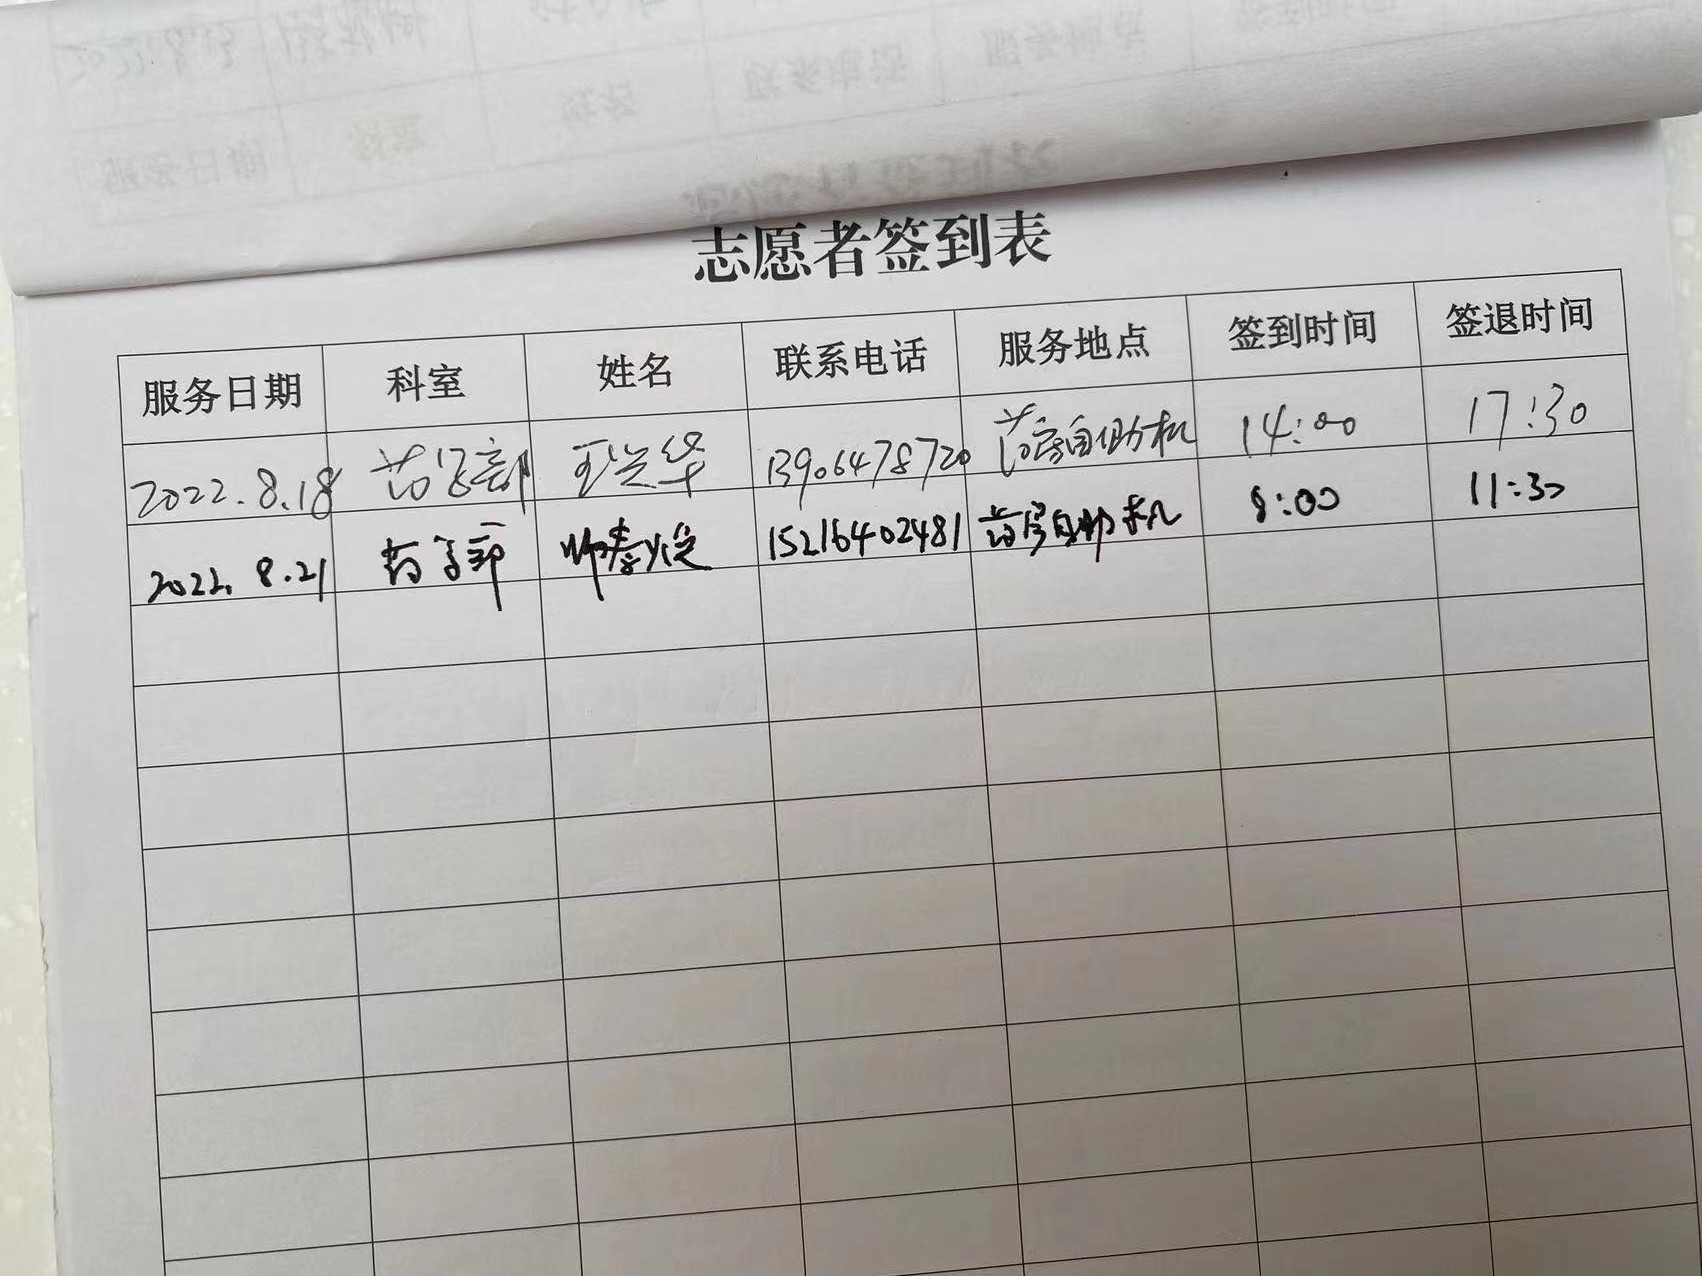 志愿者签到表
服务日期 科室 姓名 联系电话 服务地点 签到时间 签退时间
2022.8.18 药学部 王兴华 13906478720 药房自助机 14:00 17:30
2022.8.21 药学部 15216402481 药房自助机 8:00 11:30